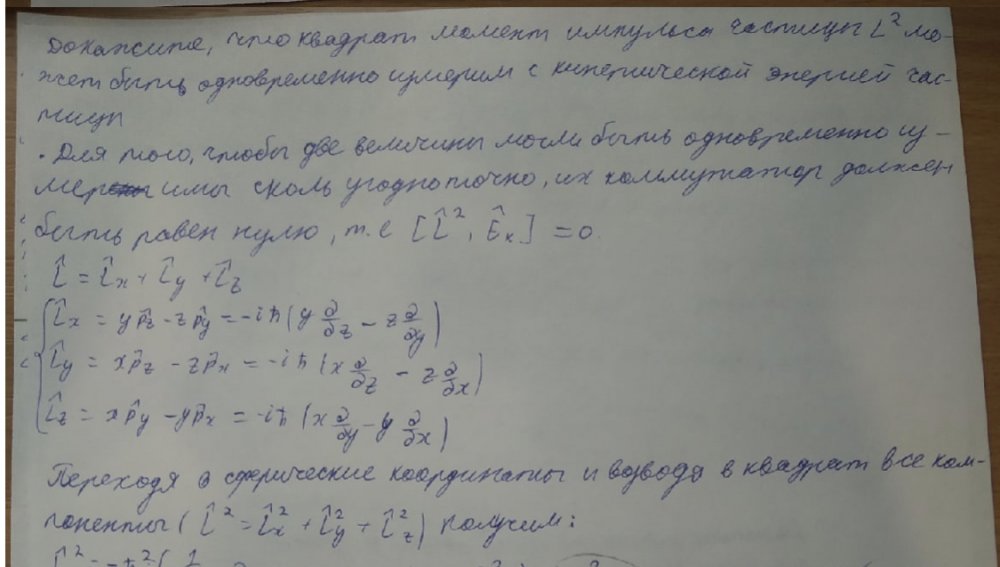 Докажите, что квадрат момент импульса частицы L² мо-
жет быть одновременно измерим с кинетической энергией час-
тицы
. Для того, чтобы две величины могли быть одновременно из-
меримы сколь угодно точно, их коммутатор должен
быть равен нулю, т.е [L̂², Êₖ] = 0.
L̂ = L̂x + L̂y + L̂z
L̂x = yp̂z - zp̂y = -iħ(y ∂/∂z - z ∂/∂y)
L̂y = xp̂z - zp̂x = -iħ(x ∂/∂z - z ∂/∂x)
L̂z = xp̂y - yp̂x = -iħ(x ∂/∂y - y ∂/∂x)
Переходя в сферические координаты и возводя в квадрат все ком-
поненты (L̂² = L̂x² + L̂y² + L̂z²) получим: